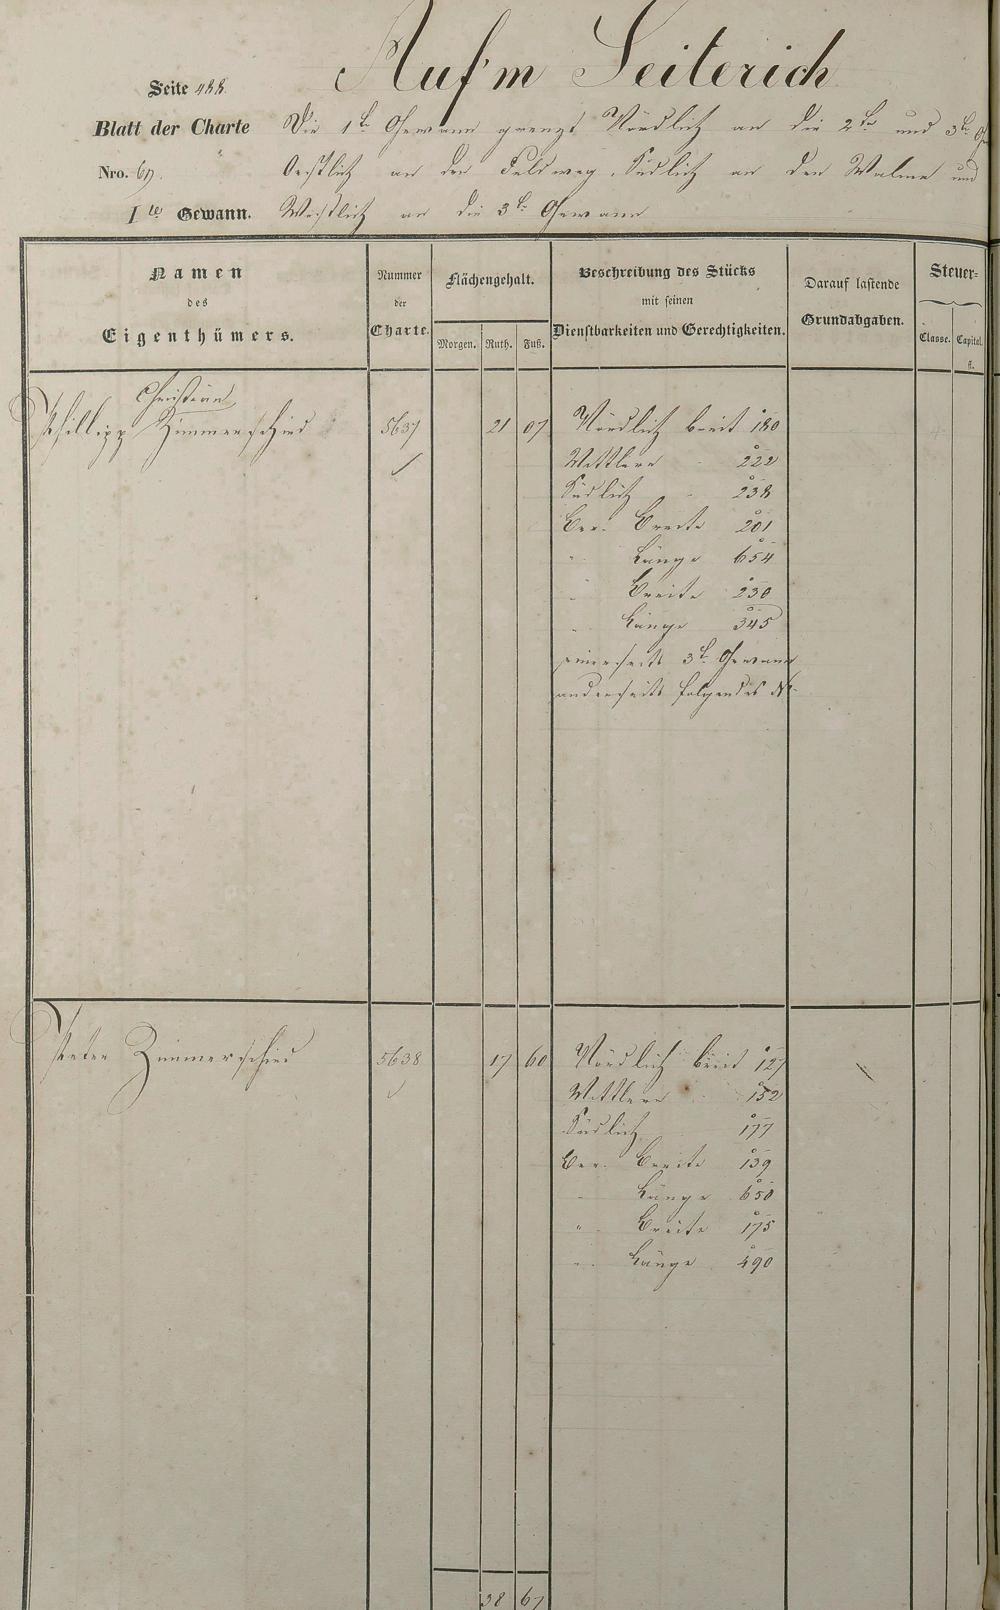 Auf'm Seiterich
Seite 488.
Blatt der Charte
Nro. 69.
1te Gewann.
Die 1te Gewann grenzt Nördlich an die 2te und 3te
Oestlich an den Feldweg, Südlich an den Walmen und
Westlich an die 3te Gewann
Namen
des
Eigenthümers.
Nummer
der
Charte.
Flächengehalt.
Morgen. Ruth. Fuß.
Beschreibung des Stücks
mit seinen
Dienstbarkeiten und Gerechtigkeiten.
Darauf lastende
Grundabgaben.
Steuer-
Classe. Capital.
fl.
Christian
Phillipp Zimmerschied 5637 21 07 Nördlich breit 180
Mittlere 222
Südlich 238
Ber. Breite 201
" Länge 654
" Breite 230
" Länge 345
einerseits 3te Gewann
anderseits folgendes Nr.
Peter Zimmerschied 5638 17 60 Nördlich breit 127
Mittlere 152
Südlich 177
Ber. Breite 139
" Länge 650
" Breite 175
" Länge 490
38 67